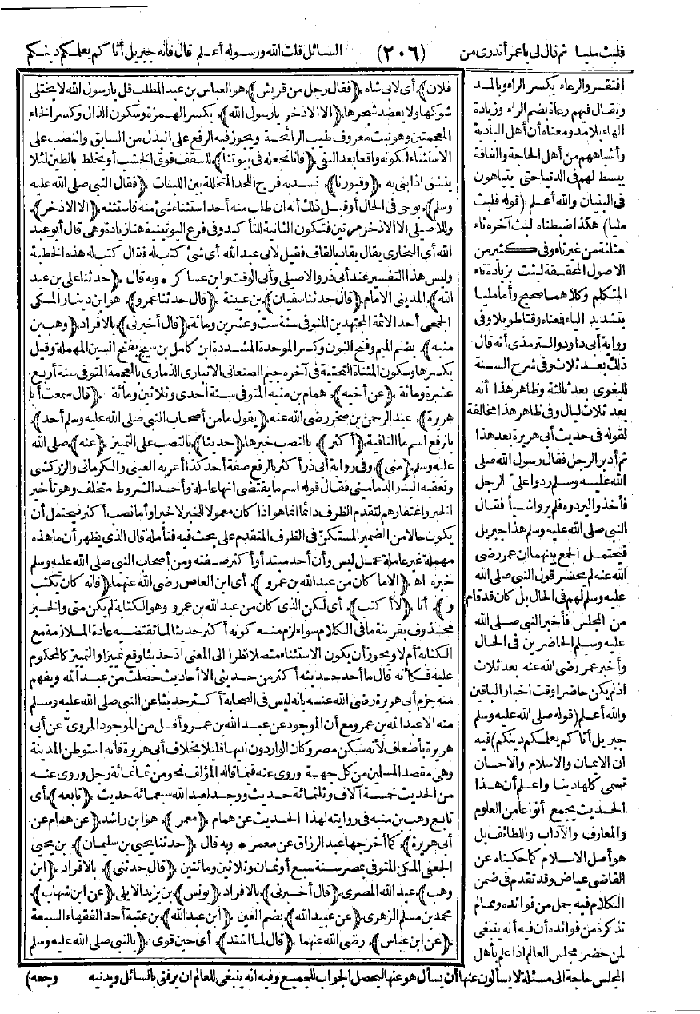 فلبث مليا ثم قال لى يا عمر أتدرى من (٢٠٦) السائل قلت الله ورسوله أعلم قال فانه جبريل أتاكم يعلمكم دينكم
فلان) أى لابى شاه (فقال رجل من قريش) هو العباس بن عبد المطلب قل يا رسول الله لا يختلى
شوكها ولا يعضد شجرها (الا الاذخر يا رسول الله) بكسر الهمزة وسكون الذال وكسر الخاء
المعجمتين وهو نبت معروف طيب الرائحة ويجوز فيه الرفع على البدل من السابق والنصب على
الاستثناء لكونه واقعا بعد النفى (فانا نجعله فى بيوتنا) للسقف فوق الخشب أو يخلط بالطين لئلا
ينشق اذا بنى به (وقبورنا) نسد به فرج اللحد المتخللة بين اللبنات (فقال النبى صلى الله عليه
وسلم) بوحى فى الحال أو قبل ذلك أنه ان طلب منه أحد استثناء شئ منه فاستثنه (الا الاذخر)
وللاصيلى الا الاذخر مرتين فتكون الثانية للتأكيد وفى فرع اليونينية هنا زيادة وهى قال أبو عبد
الله أى البخارى يقال يقاد بالقاف فقيل لابى عبد الله أى شئ كتب له فقال كتب له هذه الخطبة
وليس هذا التفسير عند أبى ذر والاصيلى وأبى الوقت وابن عساكر * وبه قال (حدثنا على بن عبد
الله) المدينى الامام (قال حدثنا سفيان) بن عيينة (قال حدثنا عمرو) هو ابن دينار المكى
الجمحى أحد الائمة المجتهدين المتوفى سنة ست وعشرين ومائة (قال أخبرنى) بالافراد (وهب بن
منبه) بضم الميم وفتح النون وكسر الموحدة المشددة ابن كامل بن سيج بفتح السين المهملة وقيل
بكسرها وسكون المثناة التحتية فى آخره جيم الصنعانى الابناوى الذمارى بالمعجمة المتوفى سنة أربع
عشرة ومائة (عن أخيه) همام بن منبه المتوفى سنة احدى وثلاثين ومائة (قال سمعت أبا
هريرة) عبد الرحمن بن صخر رضى الله عنه (يقول ما من أصحاب النبى صلى الله عليه وسلم أحد)
بالرفع اسم ما النافية (أكثر) بالنصب خبرها (حديثا) بالنصب على التمييز (عنه) صلى الله
عليه وسلم (منى) وفى رواية أبى ذر أكثر بالرفع صفة أحد كذا أعربه العينى والكرمانى والزركشى
وتعقبه البدر الدمامينى فقال قوله اسم ما يقتضى انها عاملة وأحد الشروط متخلف وهو تأخير
الخبر واغتفارهم لتقدم الظرف دائما انما هو اذا كان معمولا للخبر لا خبرا وأما نصب أكثر فيحتمل أن
يكون حالا من الضمير المستكن فى الظرف المتقدم على بحث فيه فتأمله قال الذى يظهر أن ما هذه
مهملة غير عاملة عمل ليس وأن أحد مبتدأ وأكثر صفته ومن أصحاب النبى صلى الله عليه وسلم
خبره اه (الا ما كان من عبد الله بن عمرو) أى ابن العاص رضى الله عنهما (فانه كان يكتب
و) أنا (لا أكتب) أى لكن الذى كان من عبد الله بن عمرو وهو الكتابة لم يكن منى والخبر
محذوف بقرينة ما فى الكلام سواء لزم منه كونه أكثر حديثا لما تقتضيه عادة الملازمة مع
الكتابة أم لا ويجوز أن يكون الاستثناء متصلا نظرا الى المعنى اذ حديثا وقع تمييزا والتمييز كالمحكوم
عليه فكأنه قال ما أحد حديثه أكثر من حديثى الا أحاديث حصلت من عبد الله ويفهم
منه جزم أبى هريرة رضى الله عنه بانه ليس فى الصحابة أكثر حديثا عن النبى صلى الله عليه وسلم
منه الا عبد الله بن عمرو مع أن الموجود عن عبد الله بن عمرو أقل من الموجود المروى عن أبى
هريرة بأضعاف لانه سكن مصر وكان الواردون اليها قليلا بخلاف أبى هريرة فانه استوطن المدينة
وهى مقصد المسلمين من كل جهة وروى عنه فيما قاله المؤلف نحو من ثمانمائة رجل وروى عنه
من الحديث خمسة آلاف وثلثمائة حديث ووجد لعبد الله سبعمائة حديث (تابعه) أى
تابع وهب بن منبه فى روايته لهذا الحديث عن همام (معمر) هو ابن راشد (عن همام عن
أبى هريرة) كما أخرجها عبد الرزاق عن معمر * وبه قال (حدثنا يحيى بن سليمان) بن يحيى
الجعفى المكى المتوفى بمصر سنة سبع أو ثمان وثلاثين ومائتين (قال حدثنى) بالافراد (ابن
وهب) عبد الله المصرى (قال أخبرنى) بالافراد (يونس) بن يزيد الايلى (عن ابن شهاب)
محمد بن مسلم الزهرى (عن عبيد الله) بضم العين (ابن عبد الله) بن عتبة أحد الفقهاء السبعة
(عن ابن عباس) رضى الله عنهما (قال لما اشتد) أى حين قوى (بالنبى صلى الله عليه وسلم
وجعه)
افتقر والرعاء بكسر الراء وبالمد
ويقال فيهم رعاة بضم الراء وزيادة
الهاء بلا مد ومعناه أن أهل البادية
وأشباههم من أهل الحاجة والفاقة
يبسط لهم فى الدنيا حتى يتباهون
فى البنيان والله أعلم (قوله فلبث
مليا) هكذا ضبطناه لبث آخره ثاء
مثلثة من غير تاء وفى كثير من
الاصول المحققة لبثت بزيادة تاء
المتكلم وكلاهما صحيح وأما مليا
بتشديد الياء فمعناه وقتا طويلا وفى
رواية أبى داود والترمذى أنه قال
ذلك بعد ثلاث وفى شرح السنة
للبغوى بعد ثالثة وظاهر هذا أنه
بعد ثلاث ليال وفى ظاهر هذا مخالفة
لقوله فى حديث أبى هريرة بعد هذا
ثم أدبر الرجل فقال رسول الله صلى
الله عليه وسلم ردوا على الرجل
فأخذوا ليردوه فلم يروا شيأ فقال
النبى صلى الله عليه وسلم هذا جبريل
فيحتمل الجمع بينهما أن عمر رضى
الله عنه لم يحضر قول النبى صلى الله
عليه وسلم لهم فى الحال بل كان قد قام
من المجلس فأخبر النبى صلى الله
عليه وسلم الحاضرين فى الحال
وأخبر عمر رضى الله عنه بعد ثلاث
اذ لم يكن حاضرا وقت اخبار الباقين
والله أعلم (قوله صلى الله عليه وسلم
جبريل أتاكم يعلمكم دينكم) فيه
ان الايمان والاسلام والاحسان
تسمى كلها دينا واعلم أن هذا
الحديث يجمع أنواعا من العلوم
والمعارف والآداب واللطائف بل
هو أصل الاسلام كما حكيناه عن
القاضى عياض وقد تقدم فى ضمن
الكلام فيه جمل من فوائده ومما لم
نذكره من فوائده أن فيه أنه ينبغى
لمن حضر مجلس العالم اذا علم بأهل
المجلس حاجة الى مسئلة لا يسألون عنها أن يسأل هو عنها ليحصل الجواب للجميع وفيه انه ينبغى للعالم ان يرفق بالسائل ويدنيه